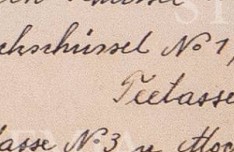 chschüssel No 1,
Teetasse
asse No 3 u Moc